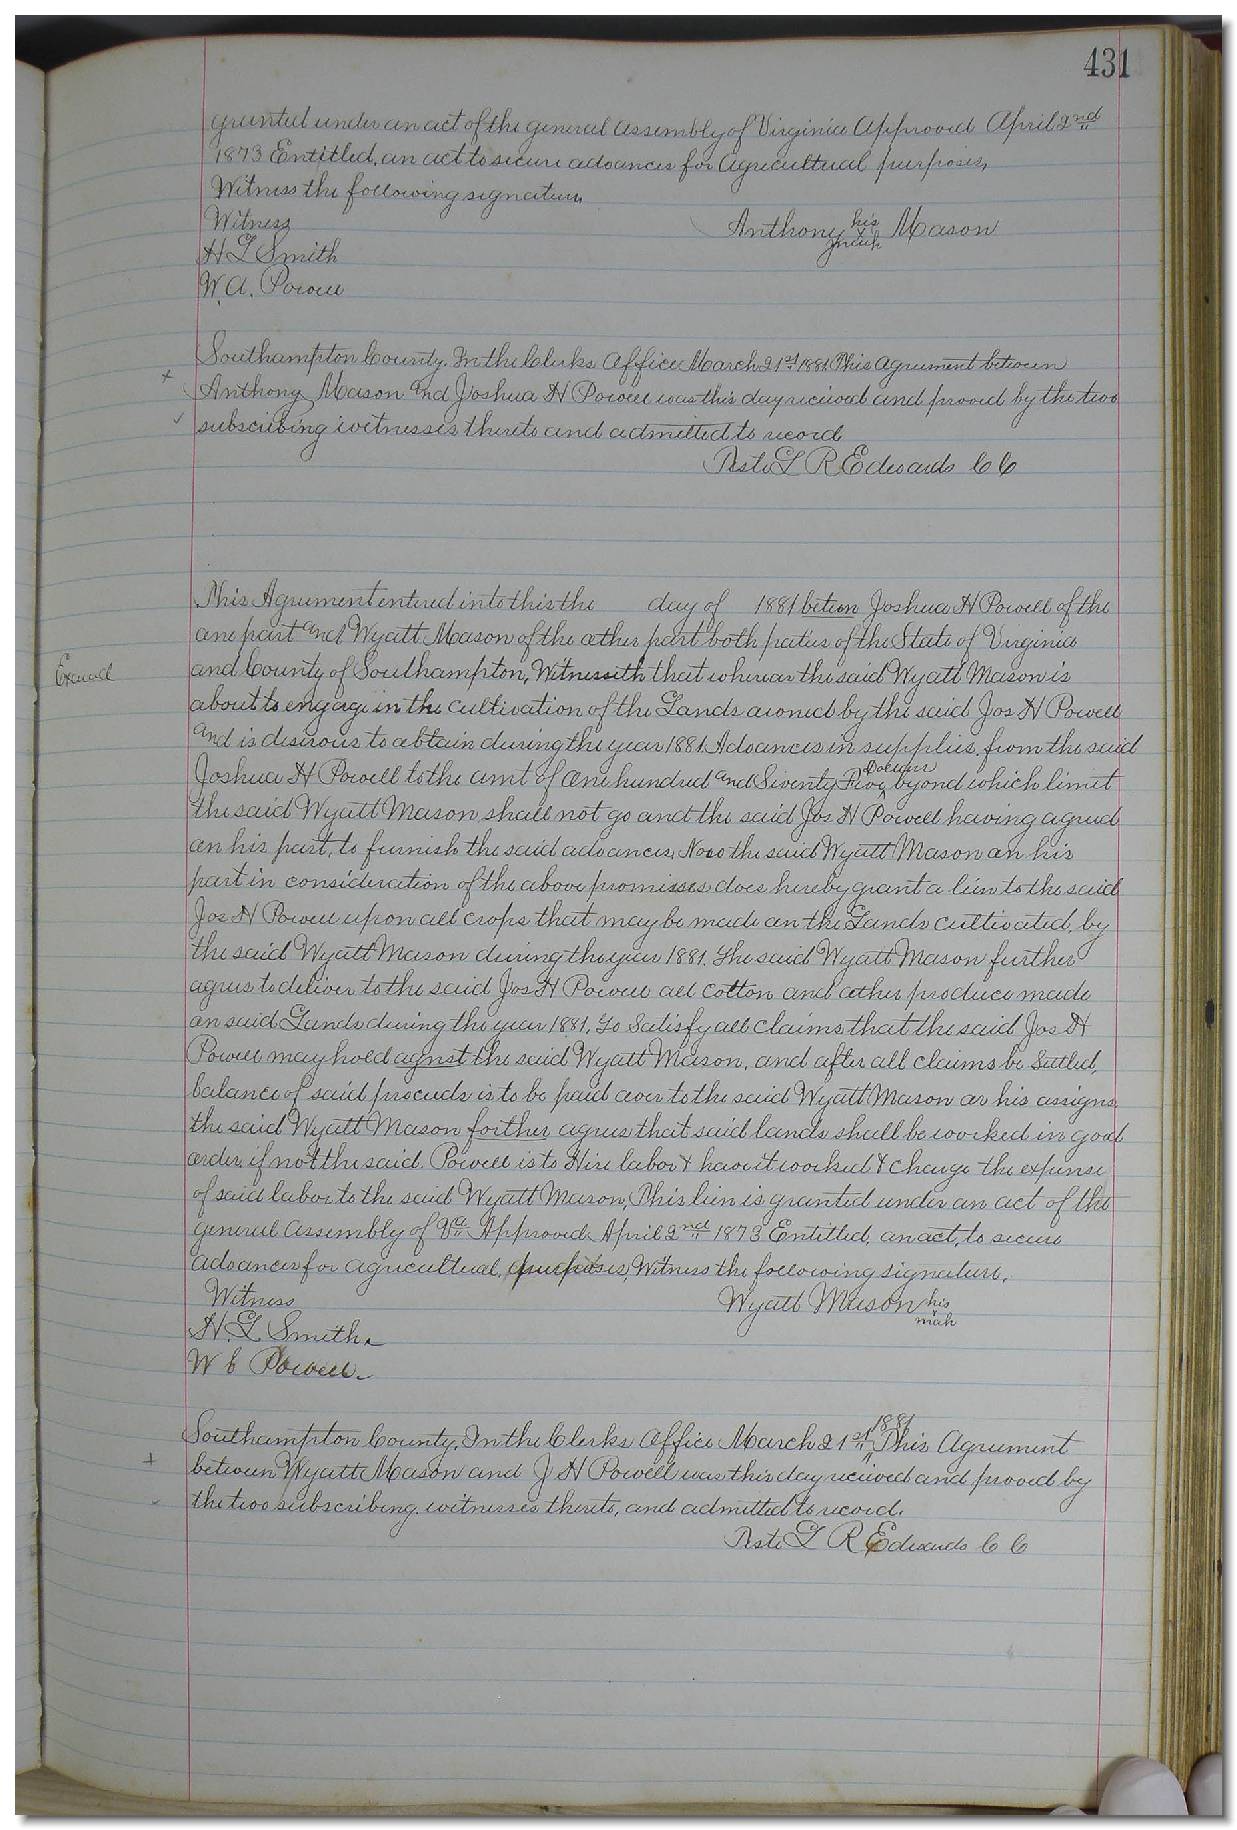 431
granted under an act of the general assembly of Virginia Approved April 2nd
1873 Entitled, an act to secure advances for Agricultural purposes,
Witness the following signature
Witness Anthony his x mark Mason
H L Smith
W. A. Powell
Southampton County. In the Clerks Office March 21st 1881. This Agreement between
Anthony Mason and Joshua H Powell was this day received and proved by the two
subscribing witnesses thereto and admitted to record
Teste L R Edwards C C
This Agrument entered into this the day of 1881 beteen Joshua H Powell of the
one part and Wyatt Mason of the other part both paties of the State of Virginia
and County of Southampton, Witnesseth that whereas the said Wyatt Mason is
about to engage in the cultivation of the Lands owned by the said Jos H Powell
and is desirous to obtain during the year 1881. Advances in supplies from the said
Joshua H Powell to the amt of One hundred and Seventy Five Dollars, byond which limit
the said Wyatt Mason shall not go and the said Jos H Powell having agreed
on his part, to furnish the said advances, Now the said Wyatt Mason on his
part in consideration of the above promisses does hereby grant a lien to the said
Jos H Powell upon all crops that may be made on the Lands cultivated, by
the said Wyatt Mason during the year 1881. The said Wyatt Mason further
agrees to deliver to the said Jos H Powell all cotton and other produce made
on said Lands during the year 1881, To Satisfy all claims that the said Jos H
Powell may hold aganst the said Wyatt Mason, and after all claims be Settled,
balance of said proceeds is to be paid over to the said Wyatt Mason or his assigns.
the said Wyatt Mason forther agrees that said lands shall be worked in good
order, if not the said Powell is to Hire labor & have it worked & charge the expense
of said labor to the said Wyatt Mason, This lien is granted under an act of the
general Assembly of Va Approved April 2nd 1873 Entitled, an act, to secure
advances for agricultural, purposes, Witness the following signature,
Witness Wyatt Mason his x mark
H. L Smith
W E Powell
Southampton County, In the Clerks Office March 21st 1881 This Agrument
between Wyatt Mason and J H Powell was this day received and proved by
the two subscribing witnesses thereto, and admitted to record.
Teste L R Edwards C C